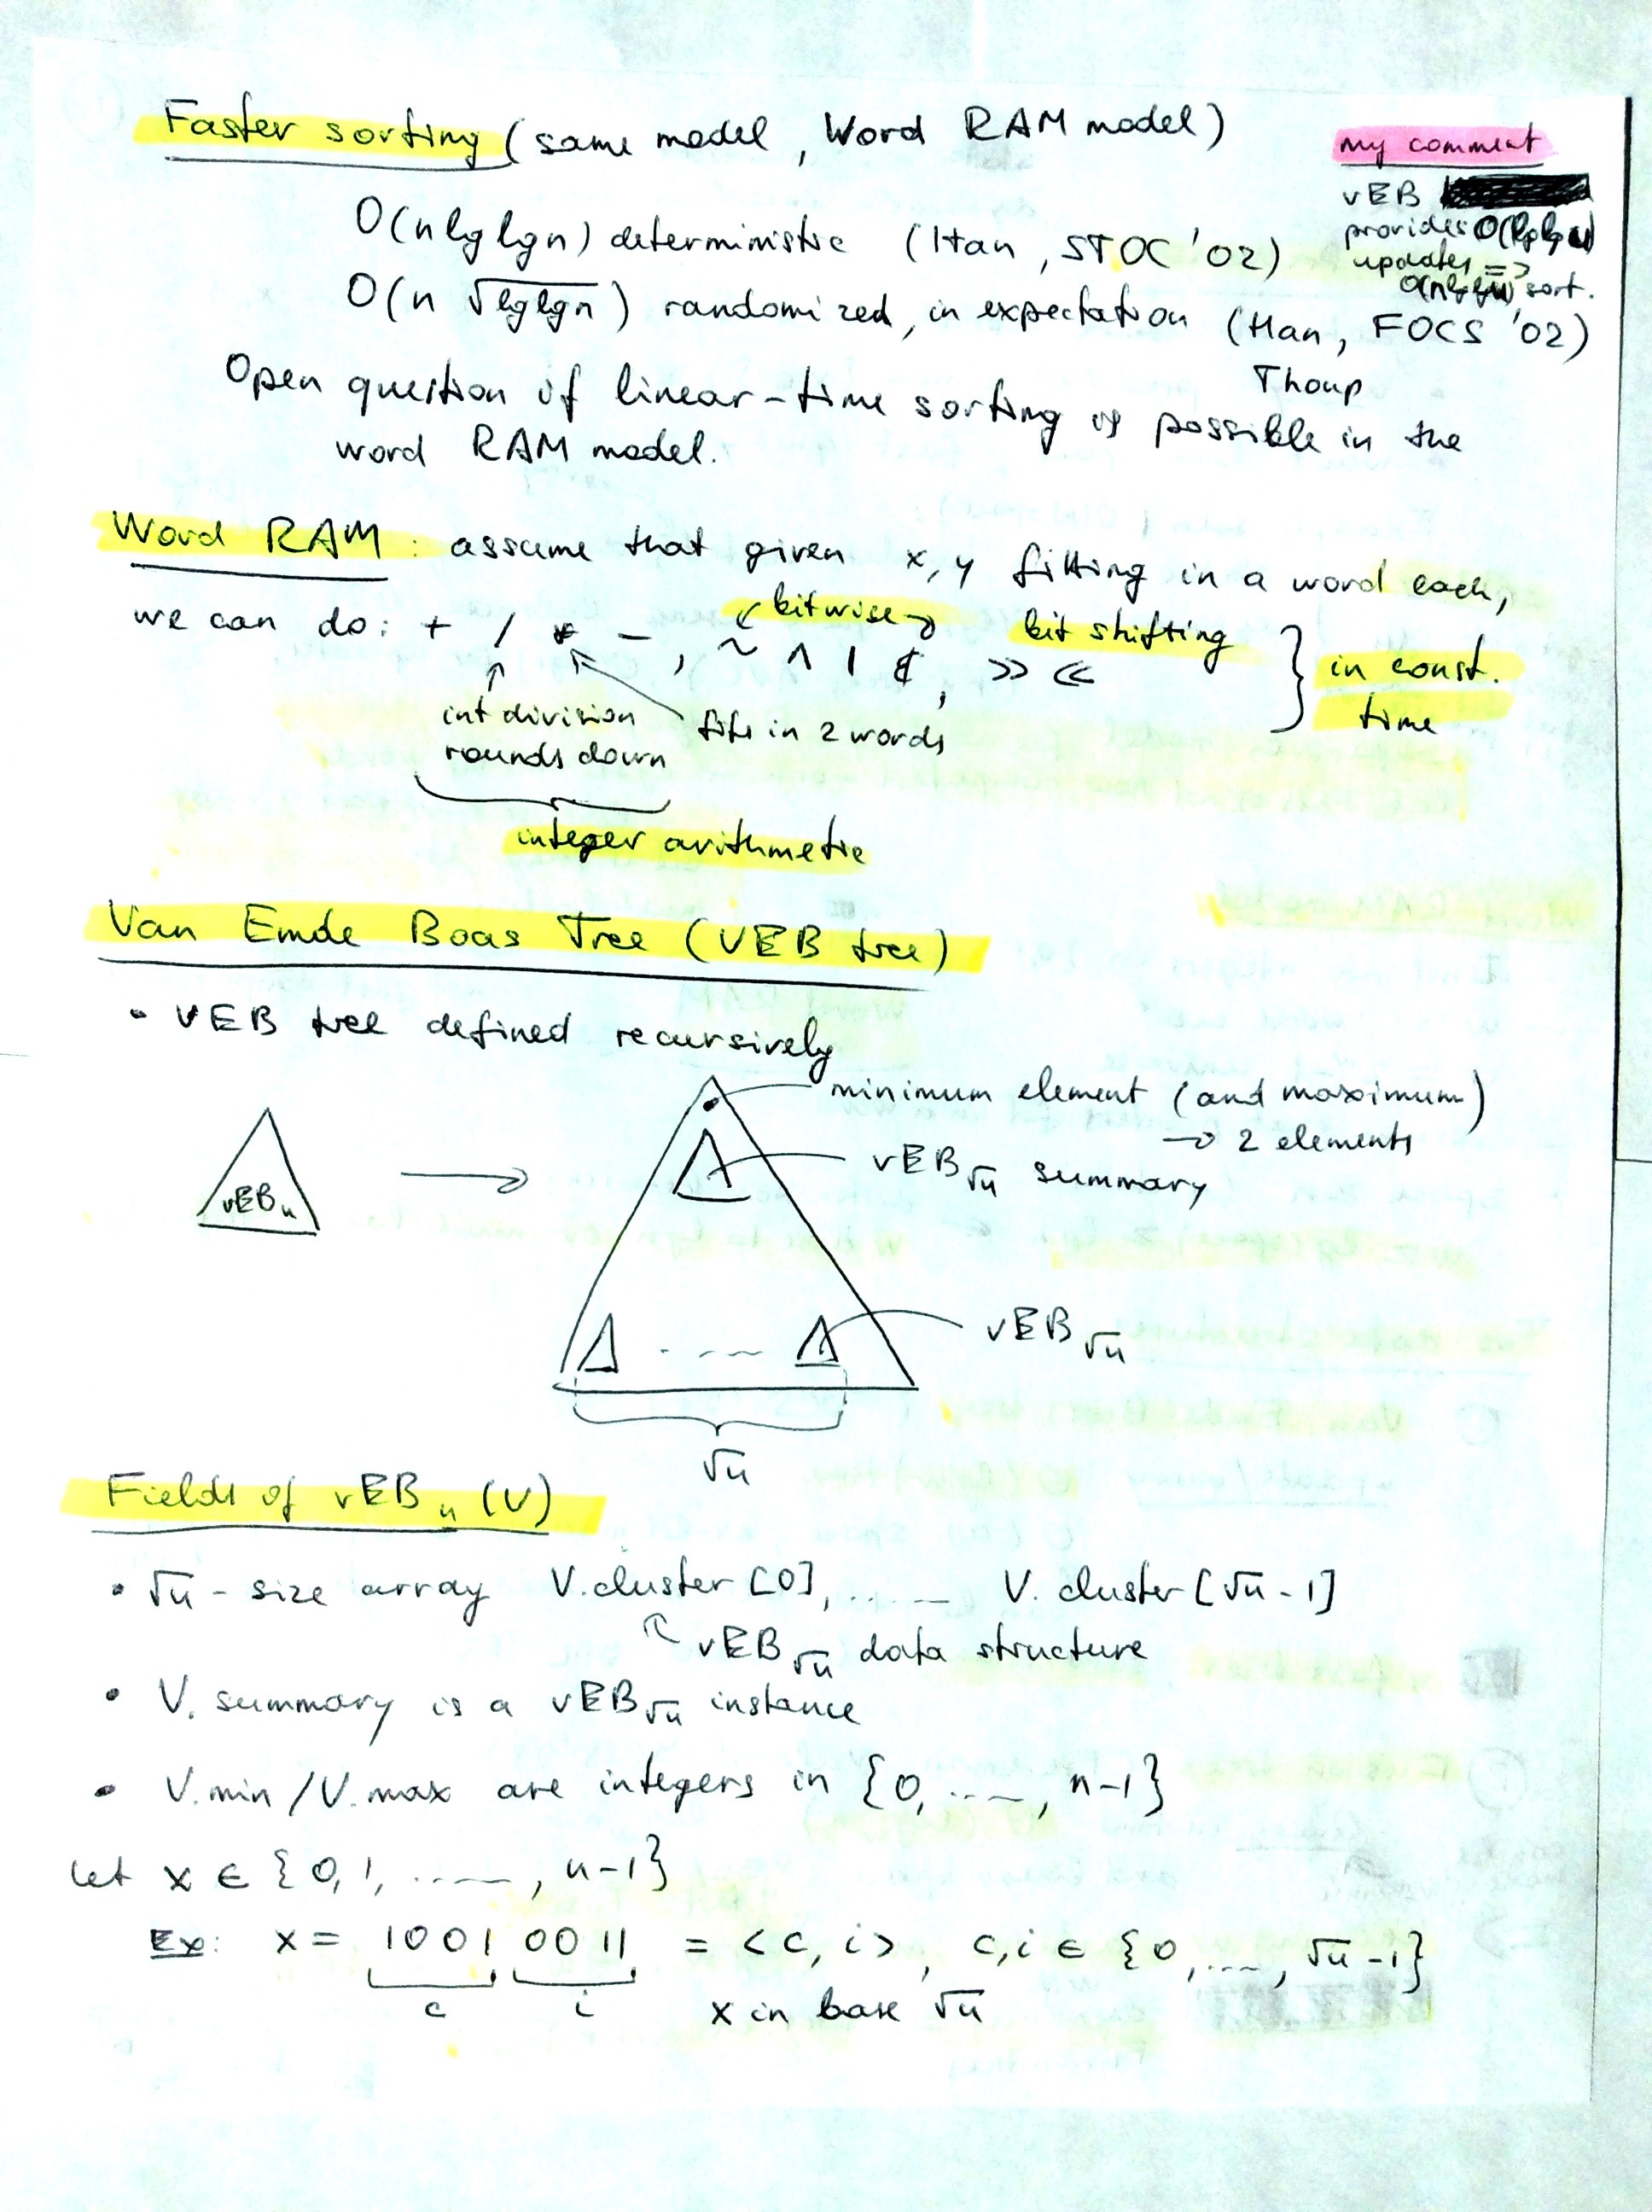 Faster sorting (same model, Word RAM model)
my comment
vEB
provides O(lg lg u)
updates =>
O(n lg lg u) sort.
O(n lg lg n) deterministic (Han, STOC '02)
O(n √lg lg n) randomized, in expectation (Han, FOCS '02)
Thoup
Open question if linear-time sorting is possible in the
word RAM model.
Word RAM: assume that given x, y fitting in a word each,
we can do: + / * − , ~ ∧ | ¢, >> <<
bitwise
bit shifting
in const.
time
int division
rounds down
fits in 2 words
integer arithmetic
Van Emde Boas Tree (VEB tree)
• VEB tree defined recursively
minimum element (and maximum)
→ 2 elements
vEB√u summary
vEBu
vEB√u
√u
Fields of vEBu (V)
• √u - size array V.cluster[0], ..... V.cluster[√u - 1]
vEB√u data structure
• V.summary is a vEB√u instance
• V.min / V.max are integers in {0, ....., u-1}
let x ∈ {0, 1, ....., u-1}
Ex: x = 1001 0011 = <c, i>, c, i ∈ {0, ...., √u -1}
c i x in base √u